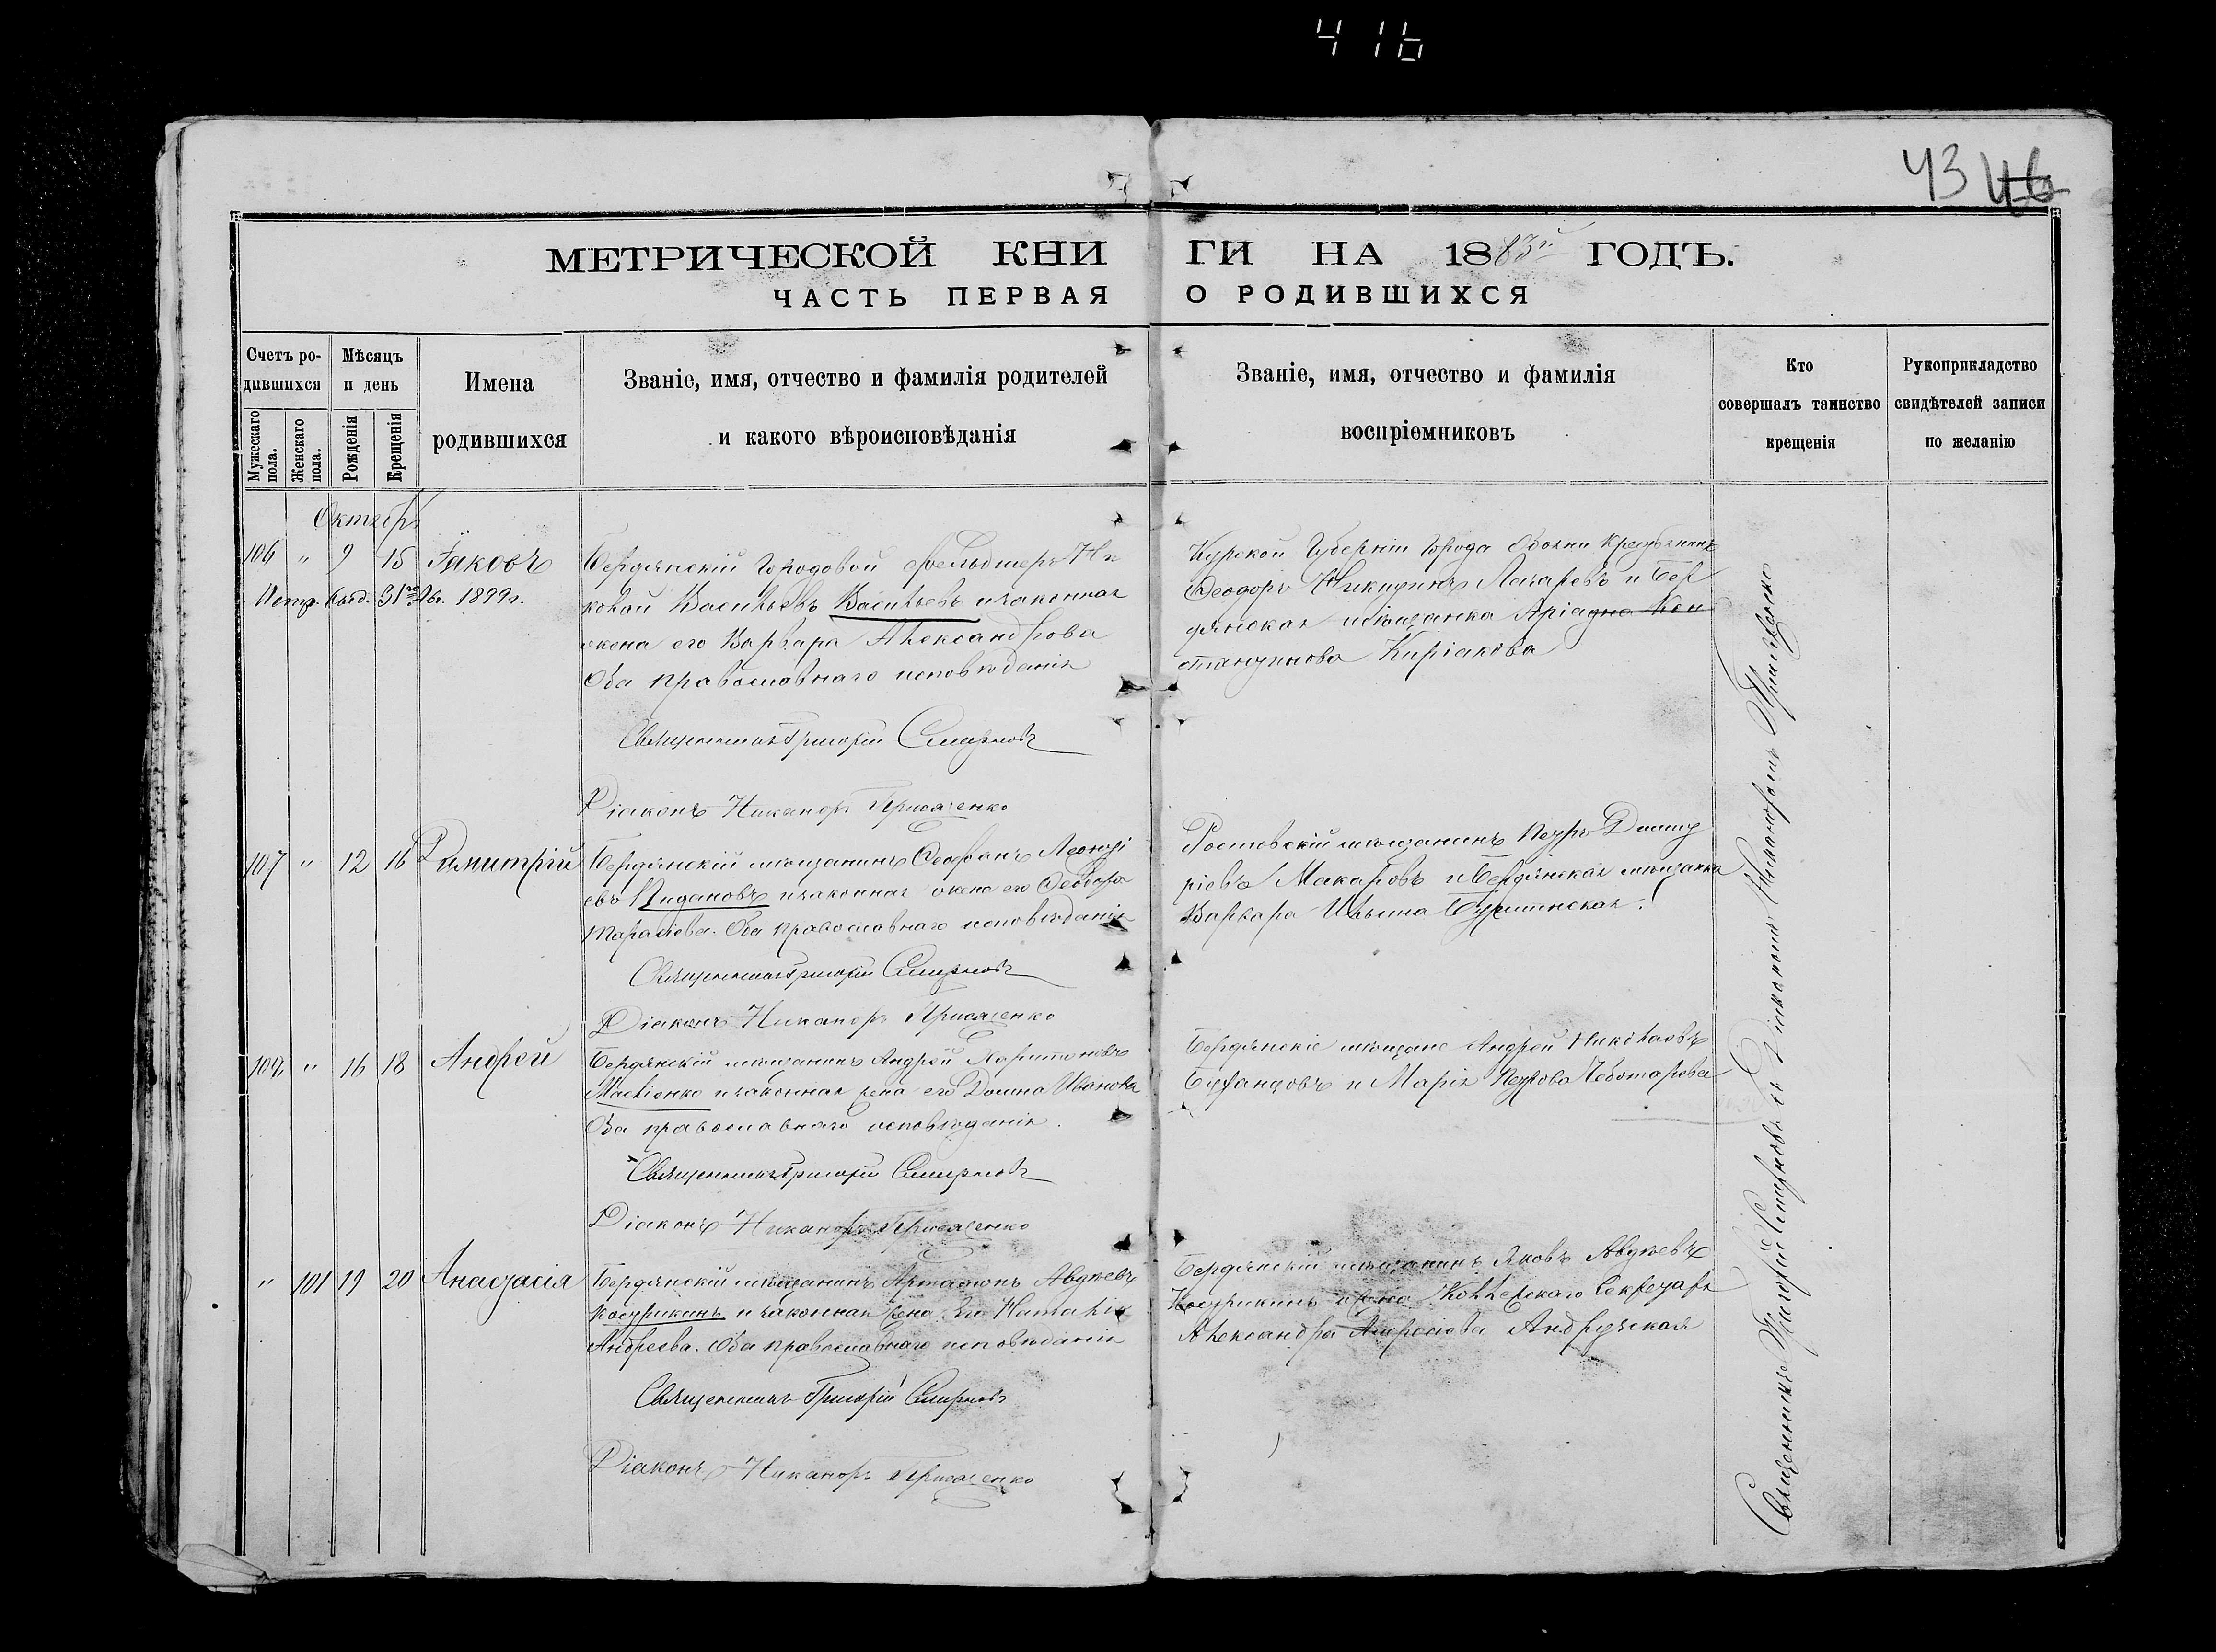 416
43 46
МЕТРИЧЕСКОЙ КНИГИ НА 1883й ГОДЪ.
ЧАСТЬ ПЕРВАЯ О РОДИВШИХСЯ
Счетъ родившихся
Мѣсяцъ и день
Имена родившихся
Званіе, имя, отчество и фамилія родителей
и какого вѣроисповѣданія
Званіе, имя, отчество и фамилія
воспріемниковъ
Кто
совершалъ таинство
крещенія
Рукоприкладство
свидѣтелей записи
по желанію
Мужескаго пола.
Женскаго пола.
Рожденія
Крещенія
Октябрь
106 " 9 15 Іаковъ
31го 1899г.
Бердянскій Городовой фельдшеръ Ни
колай Васильевъ Васильевъ и законная
жена его Варвара Александрова
Оба православнаго исповѣданія
Курской Губерніи города Обояни
Феодоръ Никитинъ Лазаревъ и Бер
дянская мѣщанка Аріадна Кон
стантинова Киріакова
Священникъ Григорій Смирновъ
Діаконъ Никаноръ
107 " 12 16 Димитрій
Бердянскій мѣщанинъ Феофанъ Леонті
евъ и законная жена его Феодора
Тарасіева. Оба православнаго исповѣданія
Ростовскій мѣщанинъ Петръ Дмит
ріевъ Макаровъ и Бердянская мѣщанка
Варвара Ильина
Священникъ Григорій Смирновъ
Діаконъ Никаноръ
108 " 16 18 Андрей
Бердянскій мѣщанинъ Андрей Харитоновъ
и законная жена его Домна Иванова
Оба православнаго исповѣданія.
Бердянскіе мѣщане Андрей Николаевъ
и Марія Петрова Чеботарева
Священникъ Григорій Смирновъ
Діаконъ Никаноръ
" 101 19 20 Анастасія
Бердянскій мѣщанинъ Артамонъ Авдѣевъ
Кострикинъ и законная жена его Наталія
Андреева. Оба православнаго исповѣданія
Бердянскій мѣщанинъ Яковъ Авдѣевъ
Кострикинъ и жена Коллежскаго Секретаря
Александра
Священникъ Григорій Смирновъ
Діаконъ Никаноръ
Священникъ Григорій Смирновъ съ Діакономъ Никаноромъ